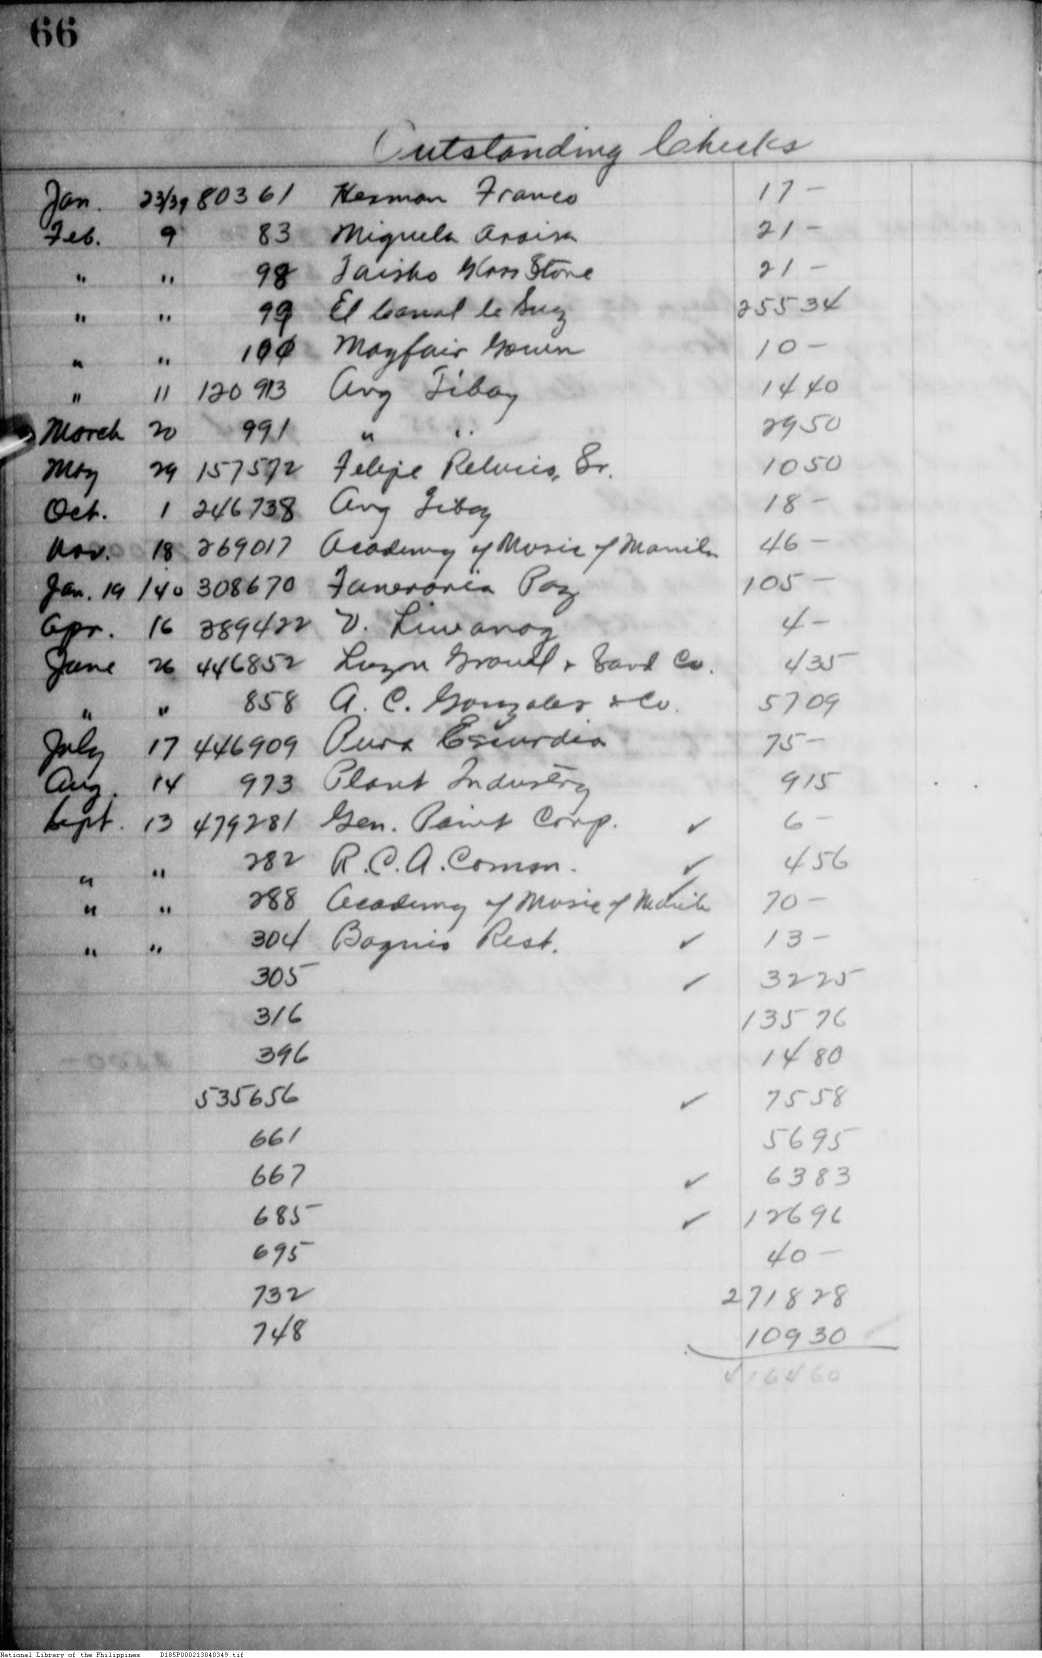 66
Outstanding Checks
Jan. 23/39 80361 Herman Franco 17 —
Feb. 9 83 Miguela 21 —
" " 98 Taisho Glass Store 21 —
" " 99 El Canal de Suez 255 34
" " 100 Mayfair Gown 10 —
" 11 120 913 Avg Tibay 14 40
March 20 991 " " 29 50
May 29 157572 Felipe Sr. 10 50
Oct. 1 246738 Avg Tibay 18 —
Nov. 18 269017 Academy of Music of Manila 46 —
Jan. 19 /40 308670 Funeraria Paz 105 —
Apr. 16 389422 V. Liwanag 4 —
June 26 446852 Luzon Gravel & Sand Co. 4 35
" " 858 A. C. Gonzales & Co. 57 09
July 17 446909 Pura Escurdia 75 —
Aug. 14 973 Plant Industry 9 15
Sept. 13 479281 Gen. Paint Corp. ✓ 6 —
" " 282 R.C.A. Comm. ✓ 4 56
" " 288 Academy of Music of Manila ✓ 70 —
" " 304 Baguio Rest. ✓ 13 —
305 ✓ 32 25
316 135 76
396 14 80
535656 ✓ 75 58
661 56 95
667 ✓ 63 83
685 ✓ 126 96
695 40 —
732 2718 28
748 109 30
4164 60
National Library of the Philippines D185P000213840349.tif